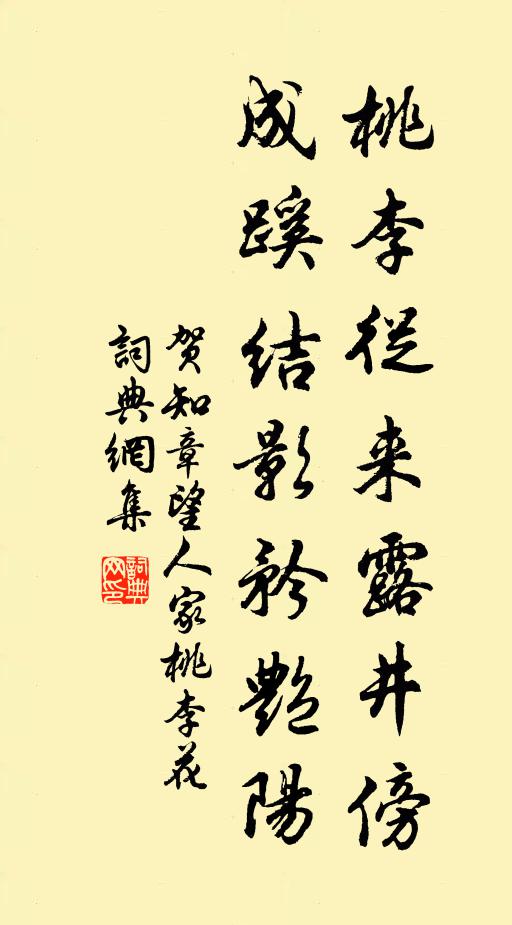 桃李從来露井傍
成蹊結影矜艷陽
賀知章望人家桃李花
詞典網集